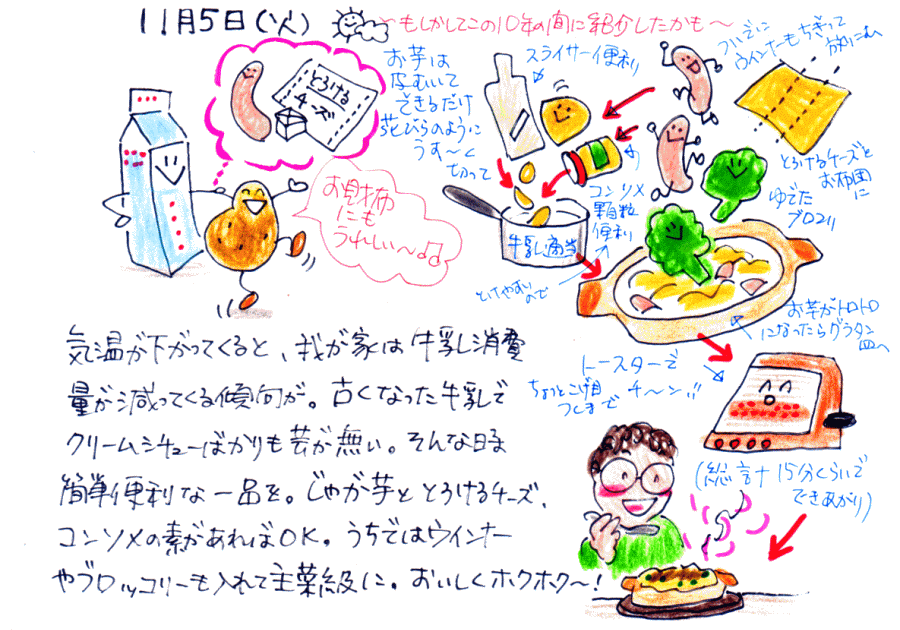 11月5日(火)
～もしかしてこの10年の間に紹介したかも～
お芋は
皮むいて
できるだけ
花びらのように
うす～く
切って
スライサー便利
ついでに
ウインナーもちぎって
とろける
チーズ
お財布
にも
うれしい～♪♫
コンソメ
顆粒
便利
とけやすいので
牛乳適当
とろけるチーズを
お布団に
ゆでた
ブロッコリ
お芋がトロトロ
になったらグラタン
皿へ
トースターで
ちょっとこげ目
つくまで
チ～ン!!
(総計15分くらいで
できあがり)
気温が下がってくると、我が家は牛乳消費
量が減ってくる傾向が。古くなった牛乳で
クリームシチューばかりも芸が無い。そんな時は
簡単便利な一品を。じゃが芋ととろけるチーズ、
コンソメの素があればOK。うちではウインナー
やブロッコリーも入れて主菜級に。おいしくホクホク～!